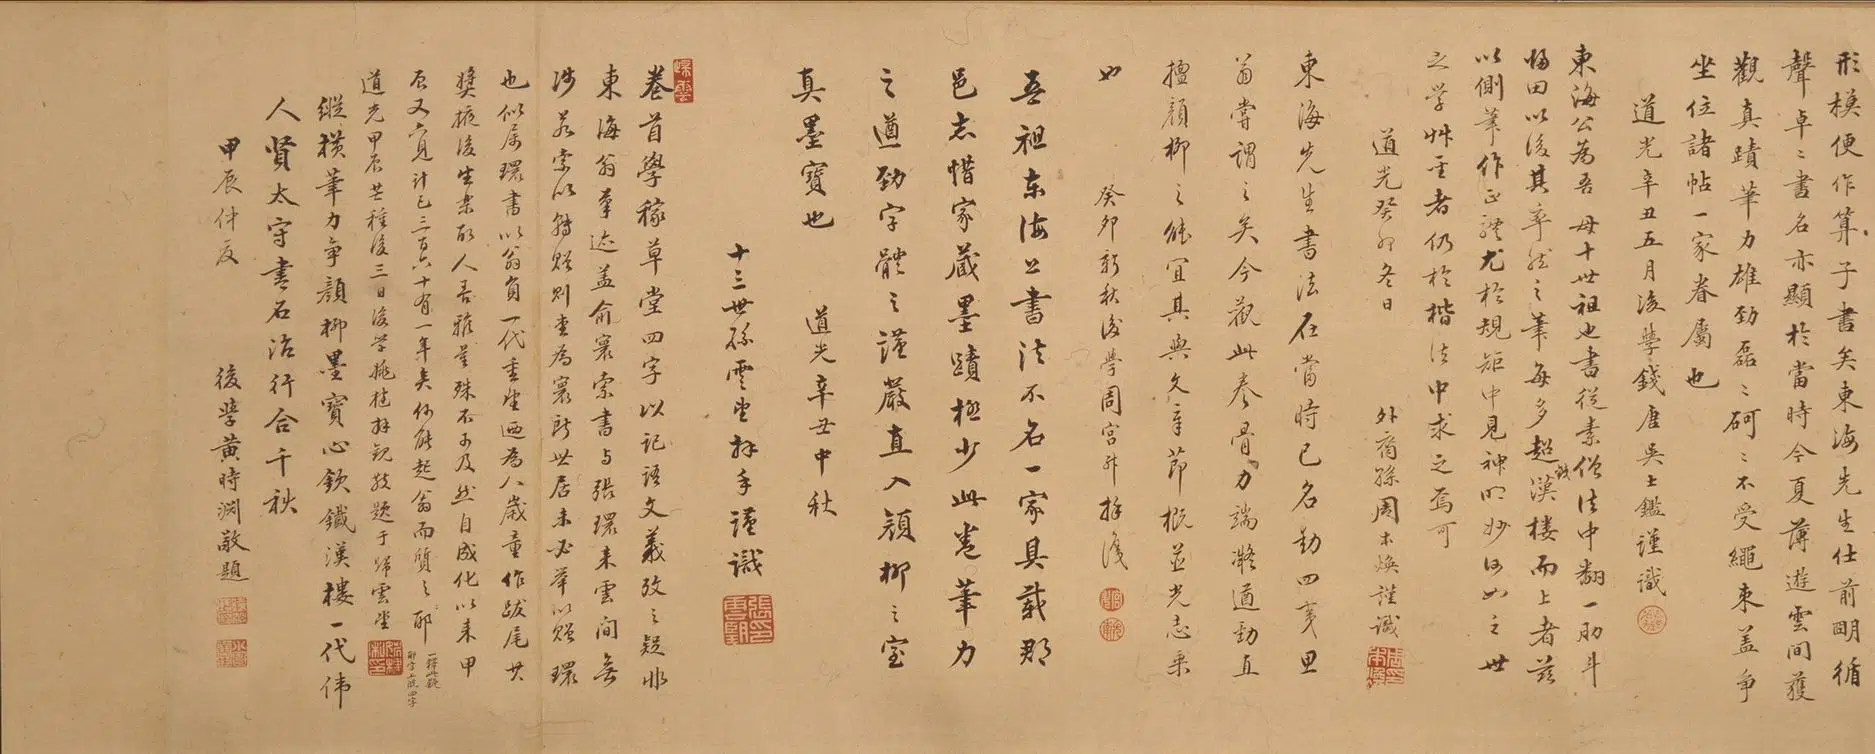 形模便作算子書矣東海先生仕前明循
聲卓〻書名亦顯於當時今夏薄遊雲間獲
觀真蹟筆力雄勁磊〻砢〻不受繩束蓋爭
坐位諸帖一家眷屬也
道光辛丑五月後學錢唐吳士鑑謹識
東海公為吾母十世祖也書從素僧法中翻一筋斗
歸田以後其率然之筆每多超漢樓而上者茲
以側筆作正體尤於規矩中見神明妙何如之世
之學草聖者仍於楷法中求之焉可
道光癸卯冬日
外裔孫周本煥謹識
東海先生書法在當時已名動四夷里
翁嘗謂之矣今觀此卷骨力端凝遒勁直
擅顏柳之能宜其與文章節概並光志乘
也
癸卯新秋後學周宮拜讀
吾祖東海公書法不名一家具載郡
邑志惜家藏墨蹟極少此卷筆力
之遒勁字體之謹嚴直入顏柳之室
真墨寶也
道光辛丑中秋
十三世孫雲望拜手謹識
卷首學稼草堂四字以記語文義考之疑非
東海翁筆迹蓋俞寰索書與張環來雲間無
涉若索以轉贈則查為寰所世居未必舉以贈環
也似屬環書以翁負一代重望迺為八歲童作跋尾其
獎掖後生樂取人善雅量殊不可及然自成化以來甲
辰又六見計已三百六十有一年矣何能起翁而質之耶
道光甲辰芒種後三日後學姚椿拜觀敬題于歸雲堂
縱橫筆力爭顏柳墨寶心欽鐵漢樓一代偉
人賢太守書名治行合千秋
甲辰仲夏
後學黃時淵敬題